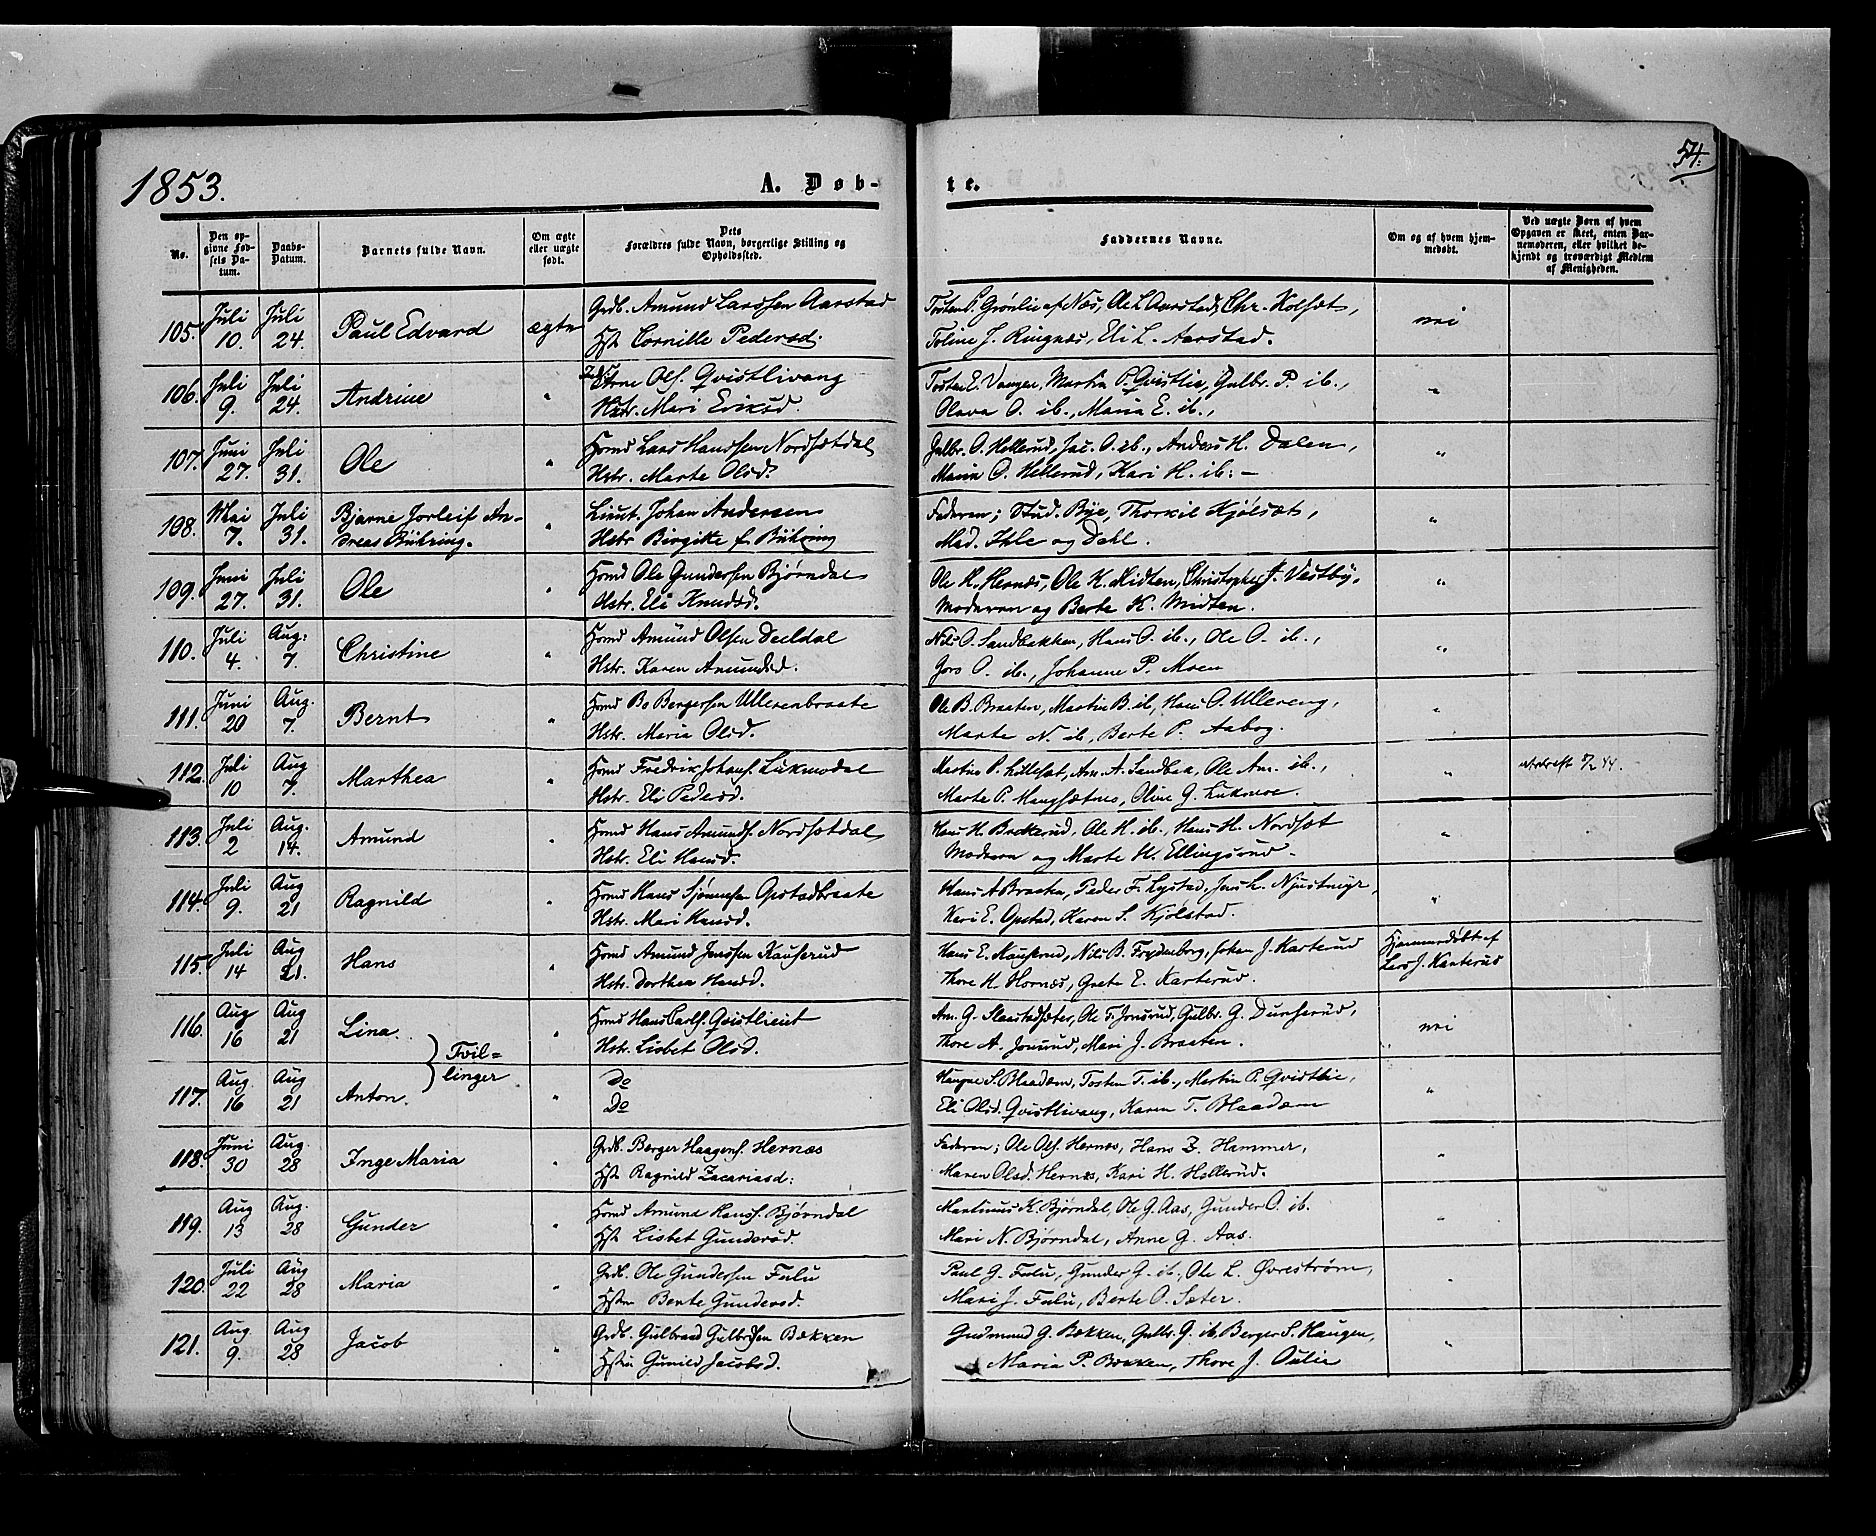 1853.
A. Døb-
te.
54.
No.
Den op-
givne Fød-
sels Da-
tum.
Daabs-
Datum.
Barnets fulde Navn.
Om ægte
eller uægte
født.
Dets
Forældres fulde Navn, borgerlige Stilling og
Opholdssted.
Faddernes Navne.
Om og af hvem hjem-
medøbt.
Ved uægte Børn af hvem
Opgaven er skeet, enten Bar-
nemoderen, eller hvilket be-
kjendt og troværdigt Medlem
af Menigheden.
105. Juli 10. Juli 24. Paul Edvard ægte Grdb. Amund Larssen Aarstad
Hst. Cornille Pedersd.
Tosten P. Grønlie af Næs, Ole L. Aarstad, Chr. Kolsæt,
Toline J. Ringnæs, Eli L. Aarstad.
nei
106. Juli 9. Juli 24. Andrine " Arne Ols. Qvistlivang
Hstr. Mari Eriksd.
Tosten E. Vangen, Martin P. Qvistlie, Gulbr. P. ib.,
Olava O. ib., Maria E. ib.,
"
107. Juni 27. Juli 31. Ole " Hmd Lars Hanssen Nordsætdal
Hstr. Marte Olsd.
Gulbr. O. Hellerud, Jac. O. ib., Anders H. Dalen,
Maria O. Hellerud, Kari H. ib. —
"
108. Mai 7. Juli 31. Bjarne Jorleif An-
dreas Bühring. " Lieut. Johan Andersen
Hstr Birgitte f. Bühring
Faderen; Stud. Bye, Thorkil Kjølsæt,
Mad. Ihle og Dahl.
"
109. Juni 27. Juli 31. Ole " Hmd Ole Gundersen Bjørndal
Hstr. Eli Knudsd.
Ole H. Hernæs, Ole K. Midten, Christopher J. Vestby,
Moderen og Berte K. Midten.
"
110. Juli 4. Aug: 7. Christine " Hmd Amund Olsen Dældal
Hstr. Karen Amundsd.
Nils O. Sandbakken, Hans O. ib., Ole O. ib.,
Goro O. ib., Johanne P. Moen
"
111. Juni 20 Aug. 7. Bernt " Hmd Bo Bergersen Ullerenbraate
Hstr. Maria Olsd.
Ole B. Braaten, Martin B. ib, Hans O. Ullereng,
Marte N. ib, Berte P. Aabog.
"
112. Juli 10 Aug 7. Marthea " Hmd Fredrik Johans. Lukmodal
Hstr. Eli Pedersd.
Martin P. Kollesæt, Am. A. Sandbæk, Ole Am. ib.,
Marte P. Mangsætnes, Oline G. Lukmoe.
"
113. Juli 2 Aug. 14. Amund " Hmd Hans Amunds. Nordsætdal
Hstr. Eli Hansd.
Hans H. Bækkerud, Ole H. ib., Hans H. Nordsæt
Moderen og Marte H. Ellingsrud.
"
114. Juli 9. Aug 21 Ragnild " Hmd Hans Simensen Opstadbraate
Hstr. Mari Hansd.
Hans A Braaten, Peder F. Lystad, Jens L. Njustmyr,
Kari E. Opstad, Karen S. Kjølstad.
"
115. Juli 14 Aug 21. Hans " Hmd Amund Jenssen Kauserud
Hstr. Dorthea Hansd.
Hans E. Kauserud, Nils B. Frydenborg, Johan J. Karterud
Thore H. Hornæs, Grete E. Karterud.
Hjemmedøbt af
Lars J. Karterud
116. Aug 16 Aug 21 Lina. " Hmd Hans Carls. Qvistlieeit
Hstr. Lisbet Olsd.
Am. G. Slaastadsæter, Ole T. Jonsrud, Gulbr. G. Dunserud,
Thore A. Jonsrud, Mari J. Braaten.
nei
Tvil-
linger
117. Aug. 16 Aug 21 Anton. " Do
Do
Haagne S. Blaadæm, Tosten T. ib., Martin P. Qvistlie,
Eli Olsd. Qvistlivang, Karen T. Blaadæm
"
118. Juni 30 Aug. 28 Inge Maria " Grdb. Berger Haagens. Hernæs
Hst. Ragnild Zacariasd:
Faderen; Ole Ols. Hernæs, Hans Z. Hammer,
Maren Olsd. Hernæs, Kari H. Hellerud.
"
119. Aug 13 Aug. 28 Gunder " Hmd Amund Hanss. Bjørndal
Hst. Lisbet Gundersd.
Martinus K. Bjørndal, Ole G. Aas, Gunder O. ib.
Mari N. Bjørndal, Anne G. Aas.
"
120. Juli 22 Aug 28 Maria " Grdb. Ole Gundersen Fulu
Hstru Bente Gundersd.
Paul G. Fulu, Gunder G. ib., Ole L. Øvrestrøm,
Mari J. Fulu, Berte O. Sæter.
"
121. Aug. 9. Aug 28 Jacob " Grdb. Gulbrand Gulbrdsen Bækken
Hstru Gunild Jacobsd.
Gudmund G. Bækken, Gulbr. G. ib, Berger S. Haugen,
Maria P. Bækken, Thore J. Oulie
"